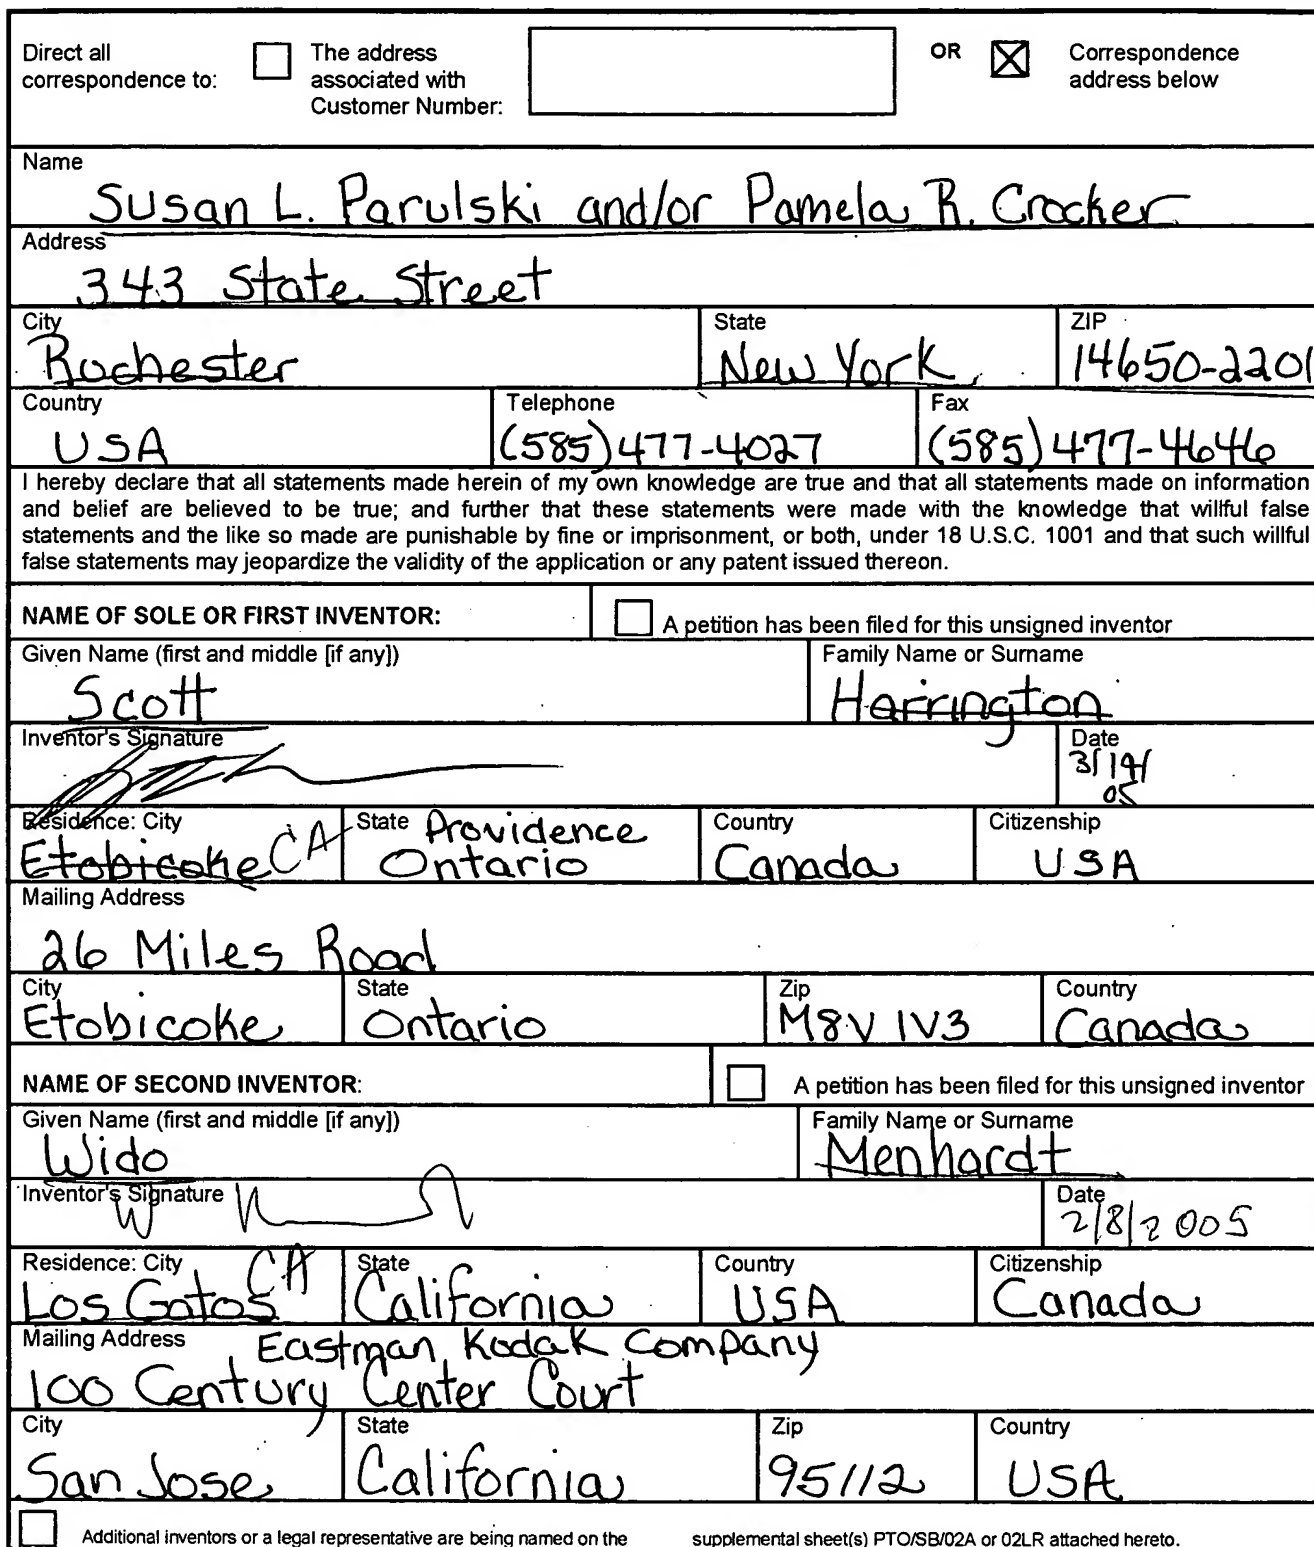 Direct all correspondence to:
The address associated with Customer Number:
OR
Correspondence address below
Name
Susan L. Parulski and/or Pamela R. Crocker
Address
343 State Street
City
State
ZIP
Rochester
New York
14650-2201
Country
Telephone
Fax
USA
(585)477-4027
(585)477-4646
I hereby declare that all statements made herein of my own knowledge are true and that all statements made on information
and belief are believed to be true; and further that these statements were made with the knowledge that willful false
statements and the like so made are punishable by fine or imprisonment, or both, under 18 U.S.C. 1001 and that such willful
false statements may jeopardize the validity of the application or any patent issued thereon.
NAME OF SOLE OR FIRST INVENTOR:
A petition has been filed for this unsigned inventor
Given Name (first and middle [if any])
Family Name or Surname
Scott
Harrington
Inventor's Signature
Date
3/14/
05
Residence: City
State Providence
Country
Citizenship
Etobicoke CA
Ontario
Canada
USA
Mailing Address
26 Miles Road
City
State
Zip
Country
Etobicoke
Ontario
M8V 1V3
Canada
NAME OF SECOND INVENTOR:
A petition has been filed for this unsigned inventor
Given Name (first and middle [if any])
Family Name or Surname
Wido
Menhardt
Inventor's Signature
Date
2/8/2005
Residence: City
State
Country
Citizenship
Los Gatos CA
California
USA
Canada
Mailing Address
Eastman Kodak Company
100 Century Center Court
City
State
Zip
Country
San Jose
California
95112
USA
Additional inventors or a legal representative are being named on the supplemental sheet(s) PTO/SB/02A or 02LR attached hereto.